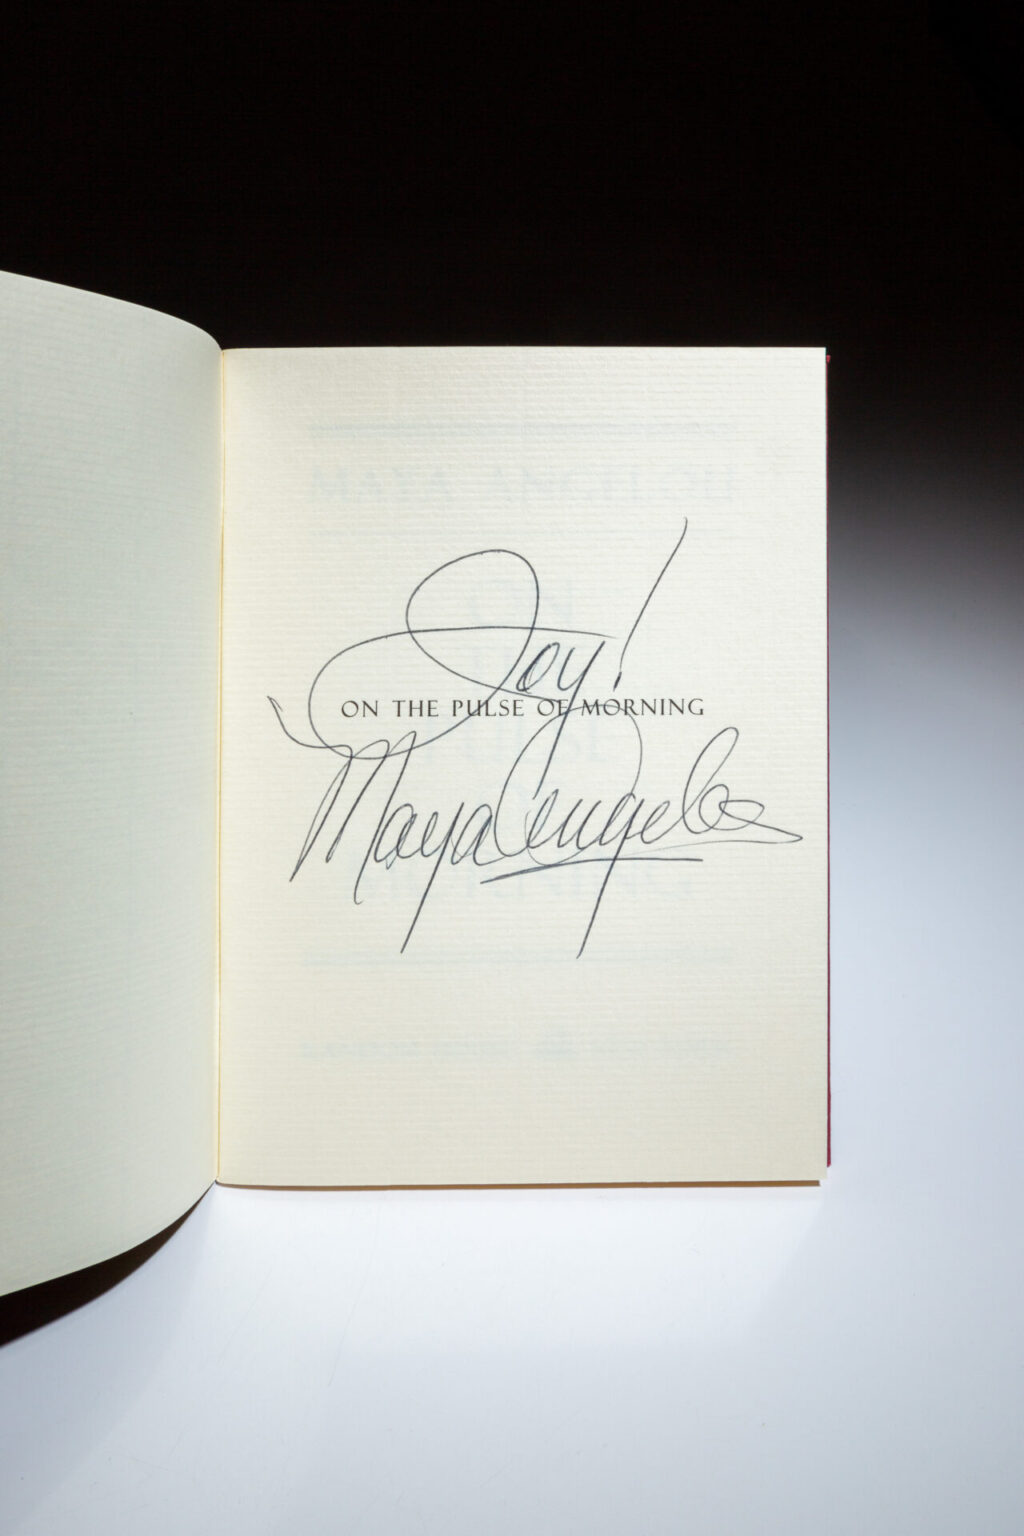 Joy!
ON THE PULSE OF MORNING
Maya Angelou